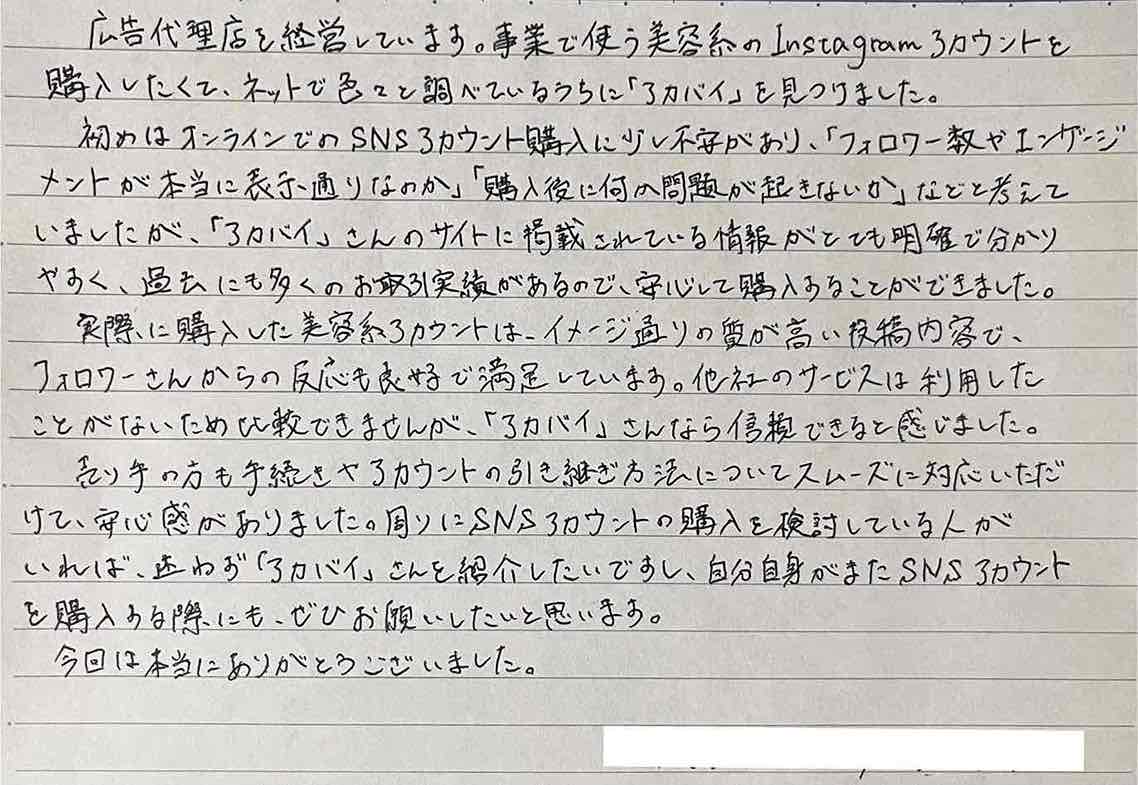 広告代理店を経営しています。事業で使う美容系のInstagramアカウントを
購入したくて、ネットで色々と調べているうちに「アカバイ」を見つけました。
初めはオンラインでのSNSアカウント購入に少し不安があり、「フォロワー数やエンゲージ
メントが本当に表示通りなのか」「購入後に何か問題が起きないか」などと考えて
いましたが、「アカバイ」さんのサイトに掲載されている情報がとても明確で分かり
やすく、過去にも多くのお取引実績があるので、安心して購入することができました。
実際に購入した美容系アカウントは、イメージ通りの質が高い投稿内容で、
フォロワーさんからの反応も良好で満足しています。他社のサービスは利用した
ことがないため比較できませんが、「アカバイ」さんなら信頼できると感じました。
売り手の方も手続きやアカウントの引き継ぎ方法についてスムーズに対応いただ
けて、安心感がありました。周りにSNSアカウントの購入を検討している人が
いれば、迷わず「アカバイ」さんを紹介したいですし、自分自身がまたSNSアカウント
を購入する際にも、ぜひお願いしたいと思います。
今回は本当にありがとうございました。